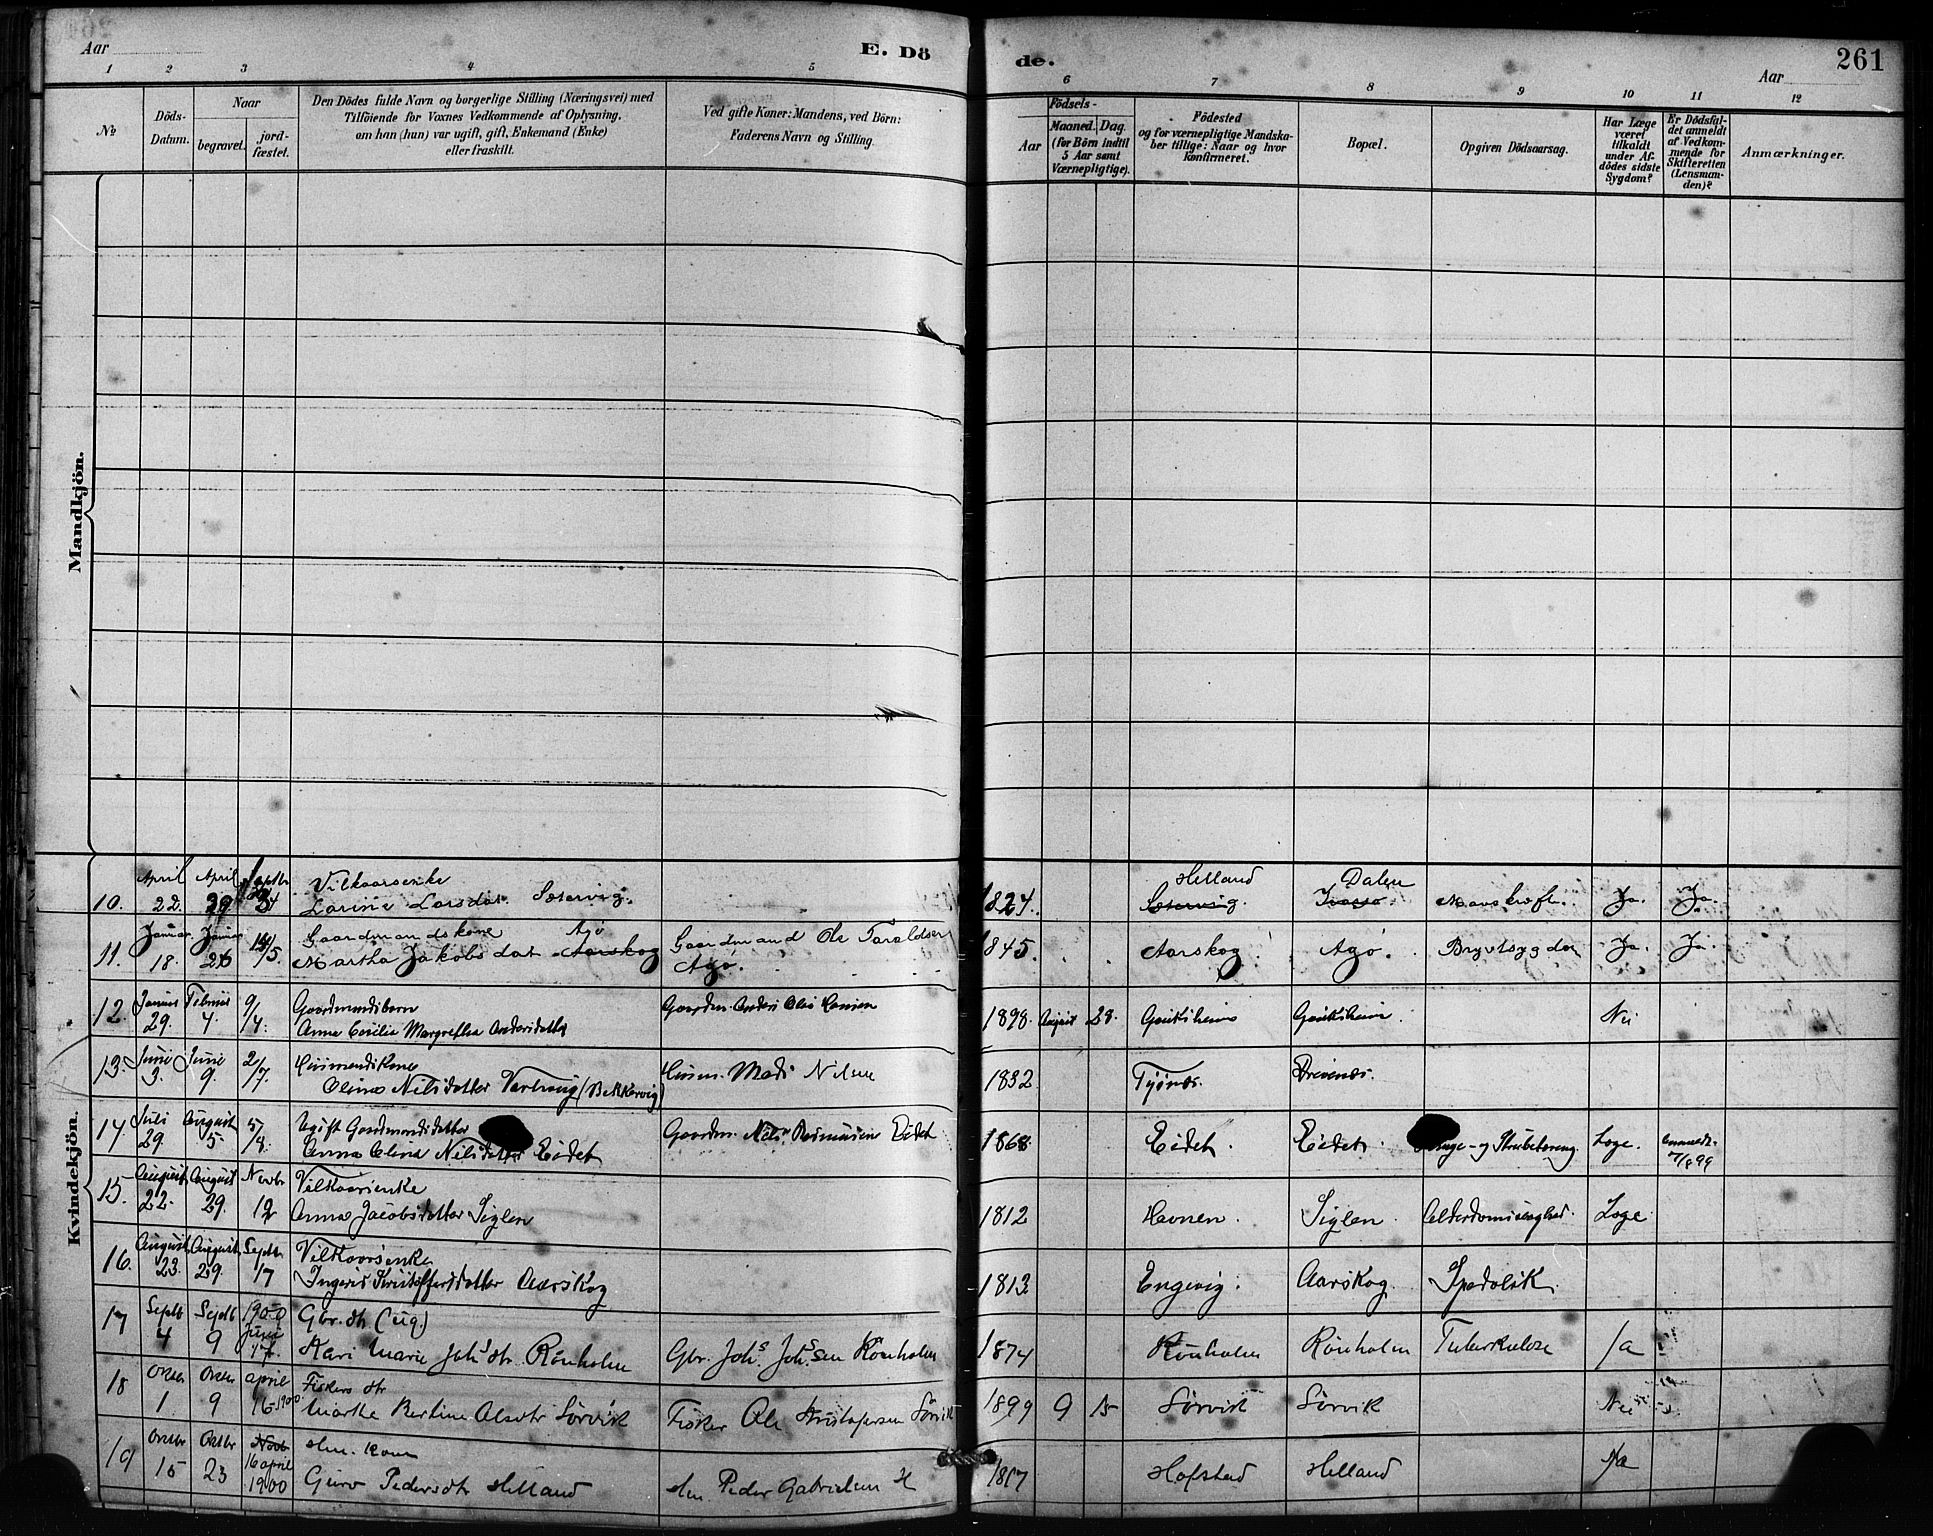 Aar
E. Dö
de.
Aar
261
1 2 3 4 5 6 7 8 9 10 11 12
No
Döds-Datum.
Naar
begravet.
jord-fæstet.
Den Dödes fulde Navn og borgerlige Stilling (Næringsvei) med
Tilföiende for Voxnes Vedkommende af Oplysning,
om han (hun) var ugift, gift, Enkemand (Enke)
eller fraskilt.
Ved gifte Koner: Mandens, ved Börn:
Faderens Navn og Stilling.
Födsels-
Aar
Maaned. Dag.
(for Börn indtil
5 Aar samt
Værnepligtige).
Födested
og for værnepligtige Mandska-
ber tillige: Naar og hvor
konfirmeret.
Bopæl.
Opgiven Dödsaarsag.
Har Læge
været
tilkaldt
under Af-
dödes sidste
Sygdom?
Er Dödsfal-
det anmeldt
af Vedkom-
mende for
Skifteretten
(Lensman-
den)?
Anmærkninger.
Mandkjön.
Kvindekjön.
10. April 22. April 29 Septbr 24 Vilkaarsenke
Larine Larsdat. Sætervig. 1824. Helland Sætervig. Dalen Ja. Ja.
11. Januar 18. Januar 26 14/5. Gaardmandskone
Martha Jakobsdat. Aarskog Agø Gaardmand Ole Taraldsen
Agø. 1845. Aarskog Agø. Brystsygdom Ja. Ja.
12. Januar 29. Februar 4. 9/4. Gaardmandsbarn
Anna Cecilie Margrethe Andersdatter Gaardm. Anders Olai Hansen 1898. August 28. Goutsheim Goutsheim. Nei
13. Juni 3. Juni 9. 2/7. Husmandskone
Olina Nilsdatter (Bekkervig) Husm. Mads Nilsen 1832. Tysnes.
14. Juli 29. August 5. 5/8. Ugift Gaardmandsdatter
Anna Elina Nilsdatter Eidet Gaardm. Nils Rasmusen Eidet 1868. Eidet. Eidet. Lunge- og Strubetæring. Læge. anmeldt 7/8 99
15. August 22. August 29. Novbr 12 Vilkaarsenke
Anna Jacobsdatter Siglen 1812 Havnen. Siglen. Alderdomssvaghed. Læge
16. August 23. August 29. Septbr 17 Vilkaarsenke
Ingeris Kristoffersdatter Aarskog 1813 Engevig. Aarskog. Spedalsk.
17 Septb 4 Septb 9 1900 Juni 17. Gbr. dtr (ug.)
Kari Marie Johsdtr. Rönholm Gbr. Johs. Johs.sen Rönholm 1874 Rönholm Rönholm Tuberkulose Ja
18 Oktbr 1. Oktbr 9 april 16 1900 Fiskers dtr
Marta Bertine Olsdtr Sörvik Fisker Ole Kristofersen Sörvik 1899 9 15 Sörvik Sörvik Nei
19 Oktbr 15 Oktbr 23 Novb 16 april 1900 Hm. kone
Guro Pedersdtr Helland Hm. Peder Gabrielsen H 1817 Hofstad Helland Ja